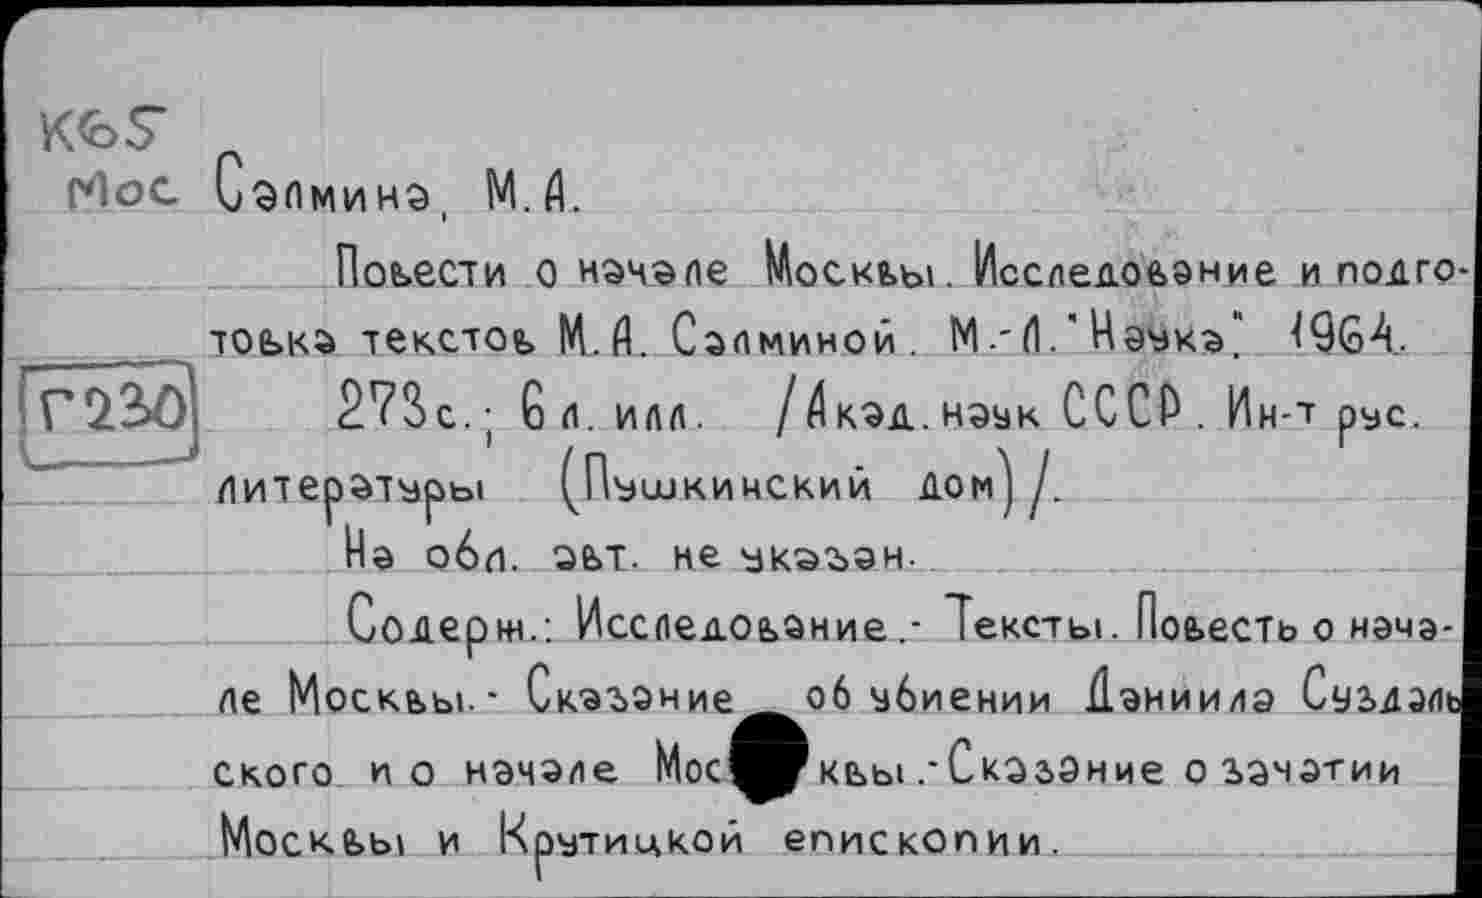 К65
Мос Салмина, М.А.
Повести о начале Москвы. Исследование и подго-
товка текстов М.А. Салминой. М.-Л. "Наука". 1964.
Г230 273с.; 6 л. илл. /Акад. наук СССР. Ин-т рус.
литературы (Пушкинский дом)/.
На обл. авт. не указан.
Содерж.: Исследование.- Тексты. Повесть о нача-
ле Москвы.- Сказание об убиении Даниила Суздаль
ского и о начале Москвы.- Сказание о зачатии
Москвы и Крутицкой епископии.